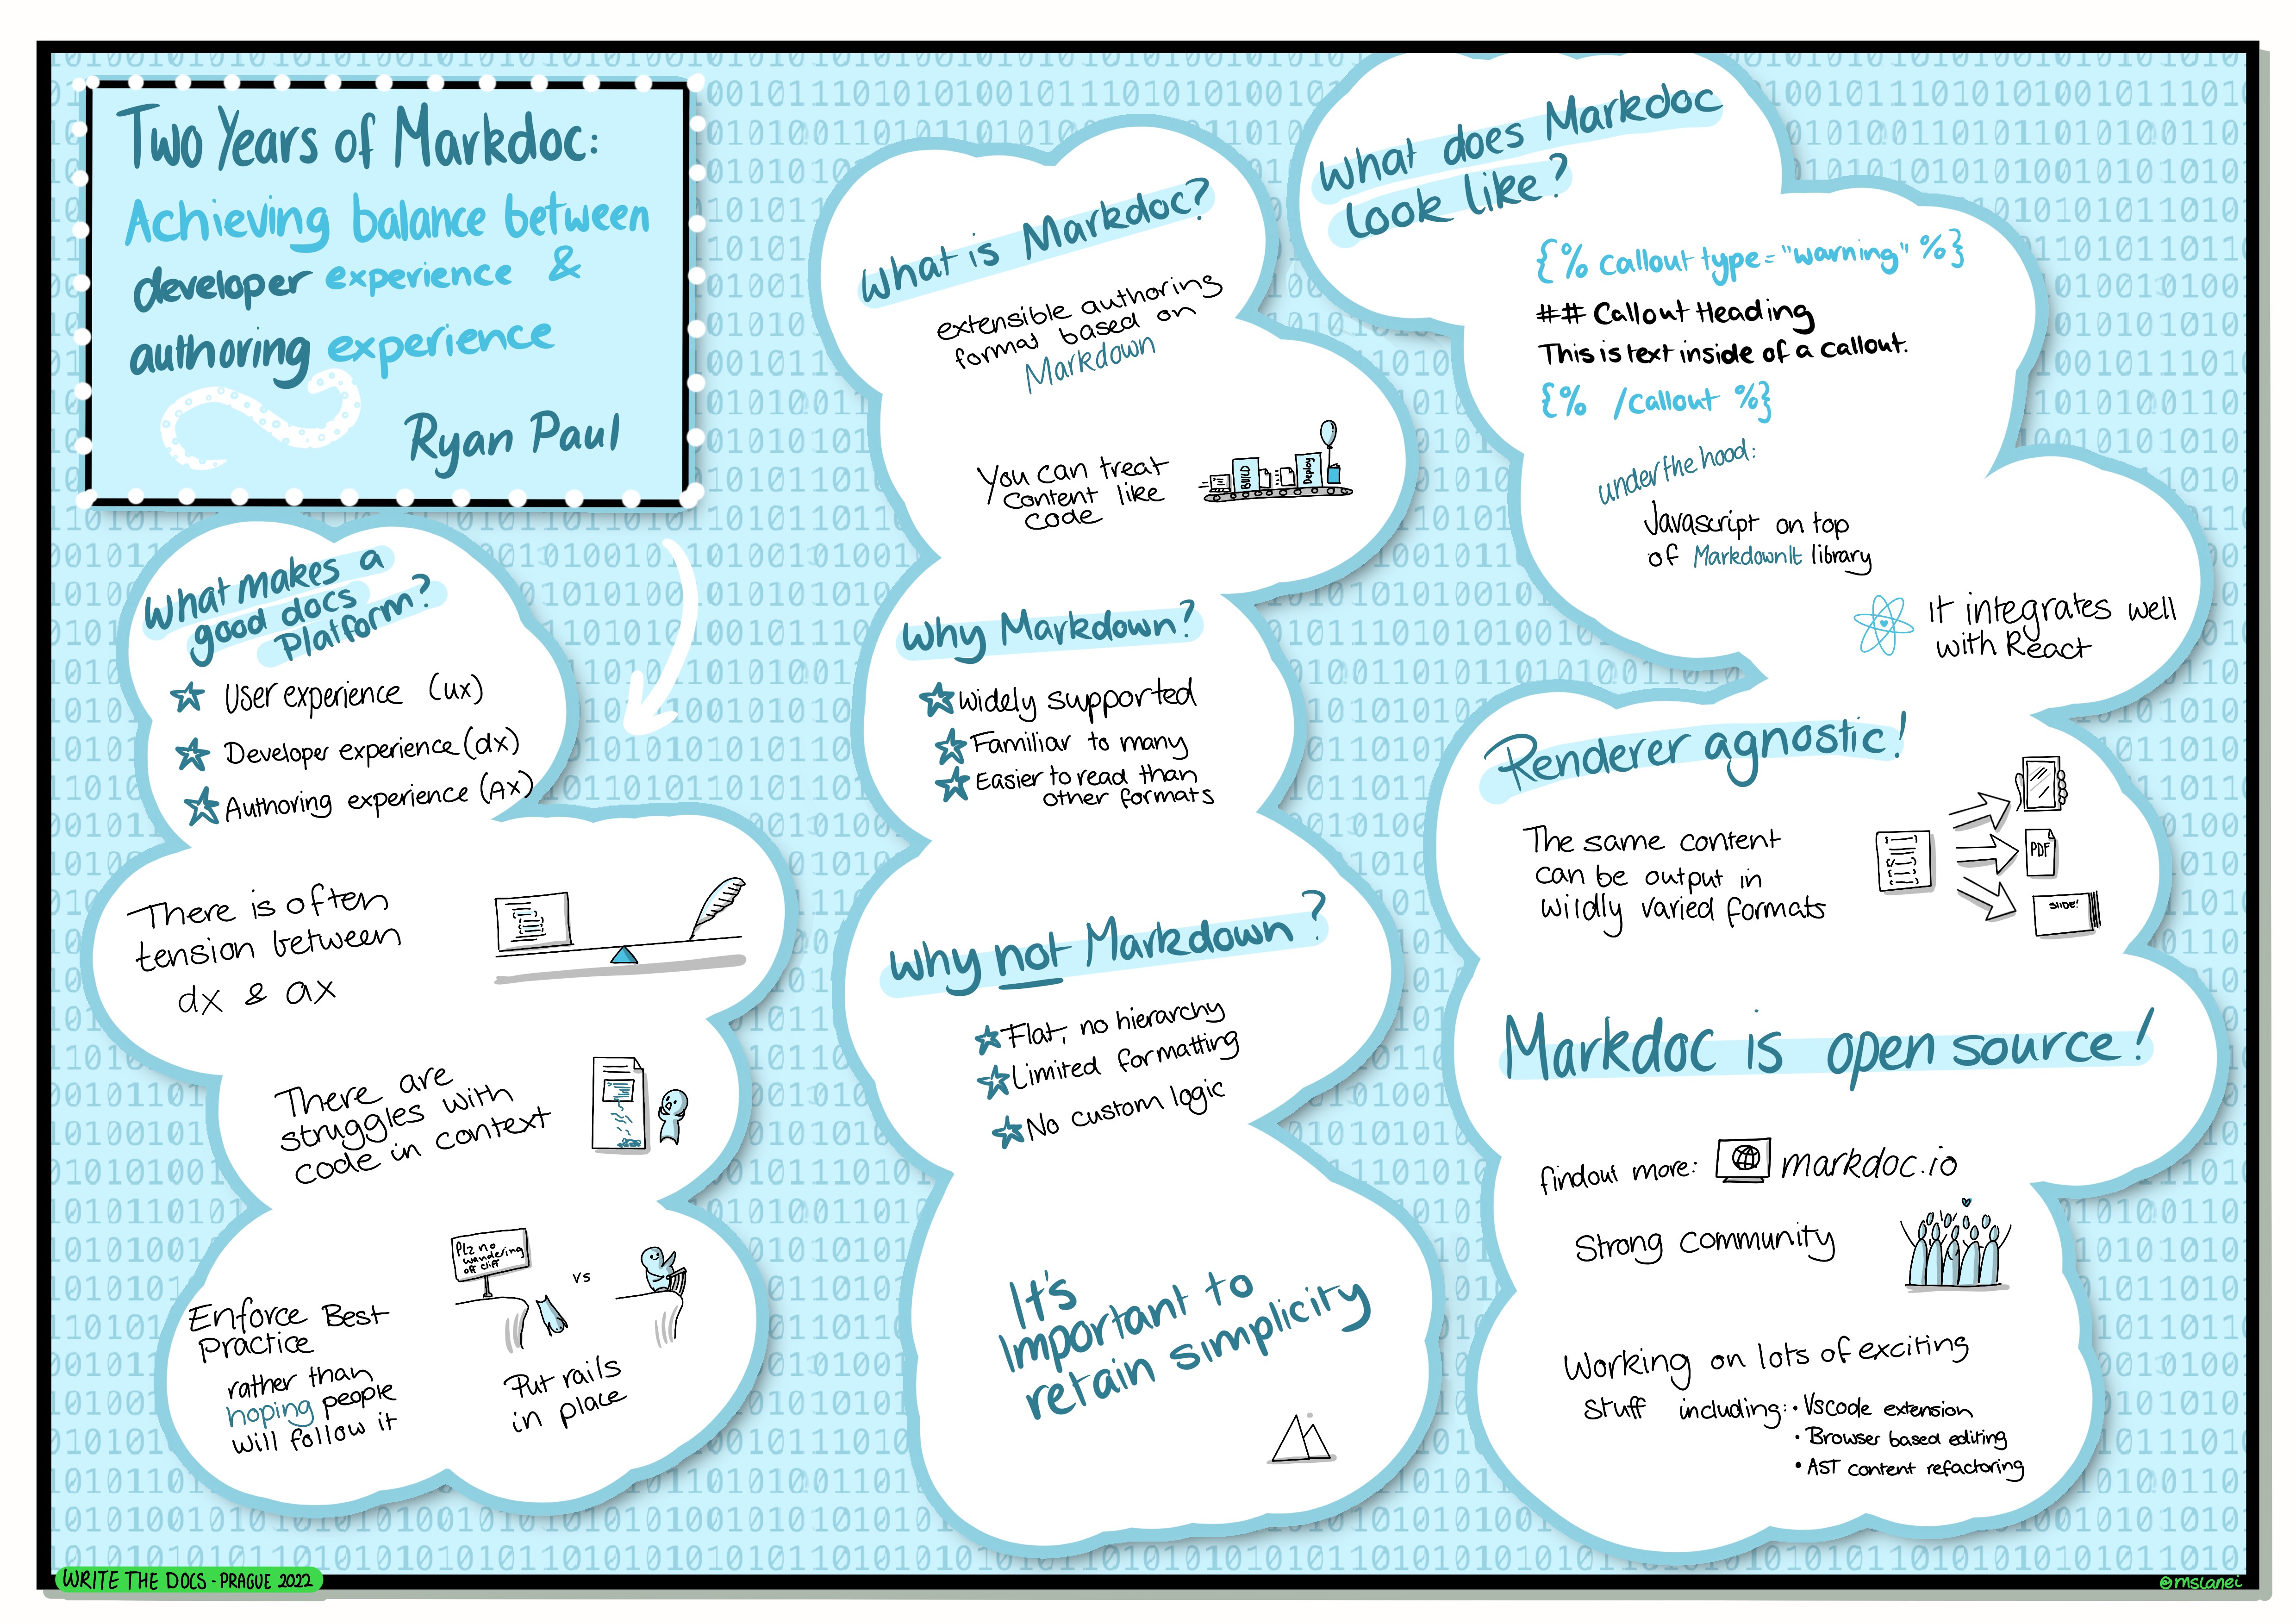 Two Years of Markdoc:
Achieving balance between
developer experience &
authoring experience
Ryan Paul
What makes a
good docs
Platform?
User experience (ux)
Developer experience (dx)
Authoring experience (Ax)
There is often
tension between
dx & ax
There are
struggles with
code in context
Plz no
wandering
off cliff
vs
Enforce Best
Practice
rather than
hoping people
will follow it
Put rails
in place
What is Markdoc?
extensible authoring
format based on
Markdown
You can treat
content like
code
BUILD
Deploy
Why Markdown?
Widely supported
Familiar to many
Easier to read than
other formats
Why not Markdown?
Flat, no hierarchy
Limited formatting
No custom logic
It's
Important to
retain simplicity
What does Markdoc
look like?
{% callout type="warning" %}
## Callout Heading
This is text inside of a callout.
{% /callout %}
under the hood:
Javascript on top
of MarkdownIt library
It integrates well
with React
Renderer agnostic!
The same content
can be output in
wildly varied formats
PDF
SLIDE!
Markdoc is open source!
findout more: markdoc.io
Strong community
Working on lots of exciting
stuff including: • Vscode extension
• Browser based editing
• AST content refactoring
WRITE THE DOCS - PRAGUE 2022
@mslanei